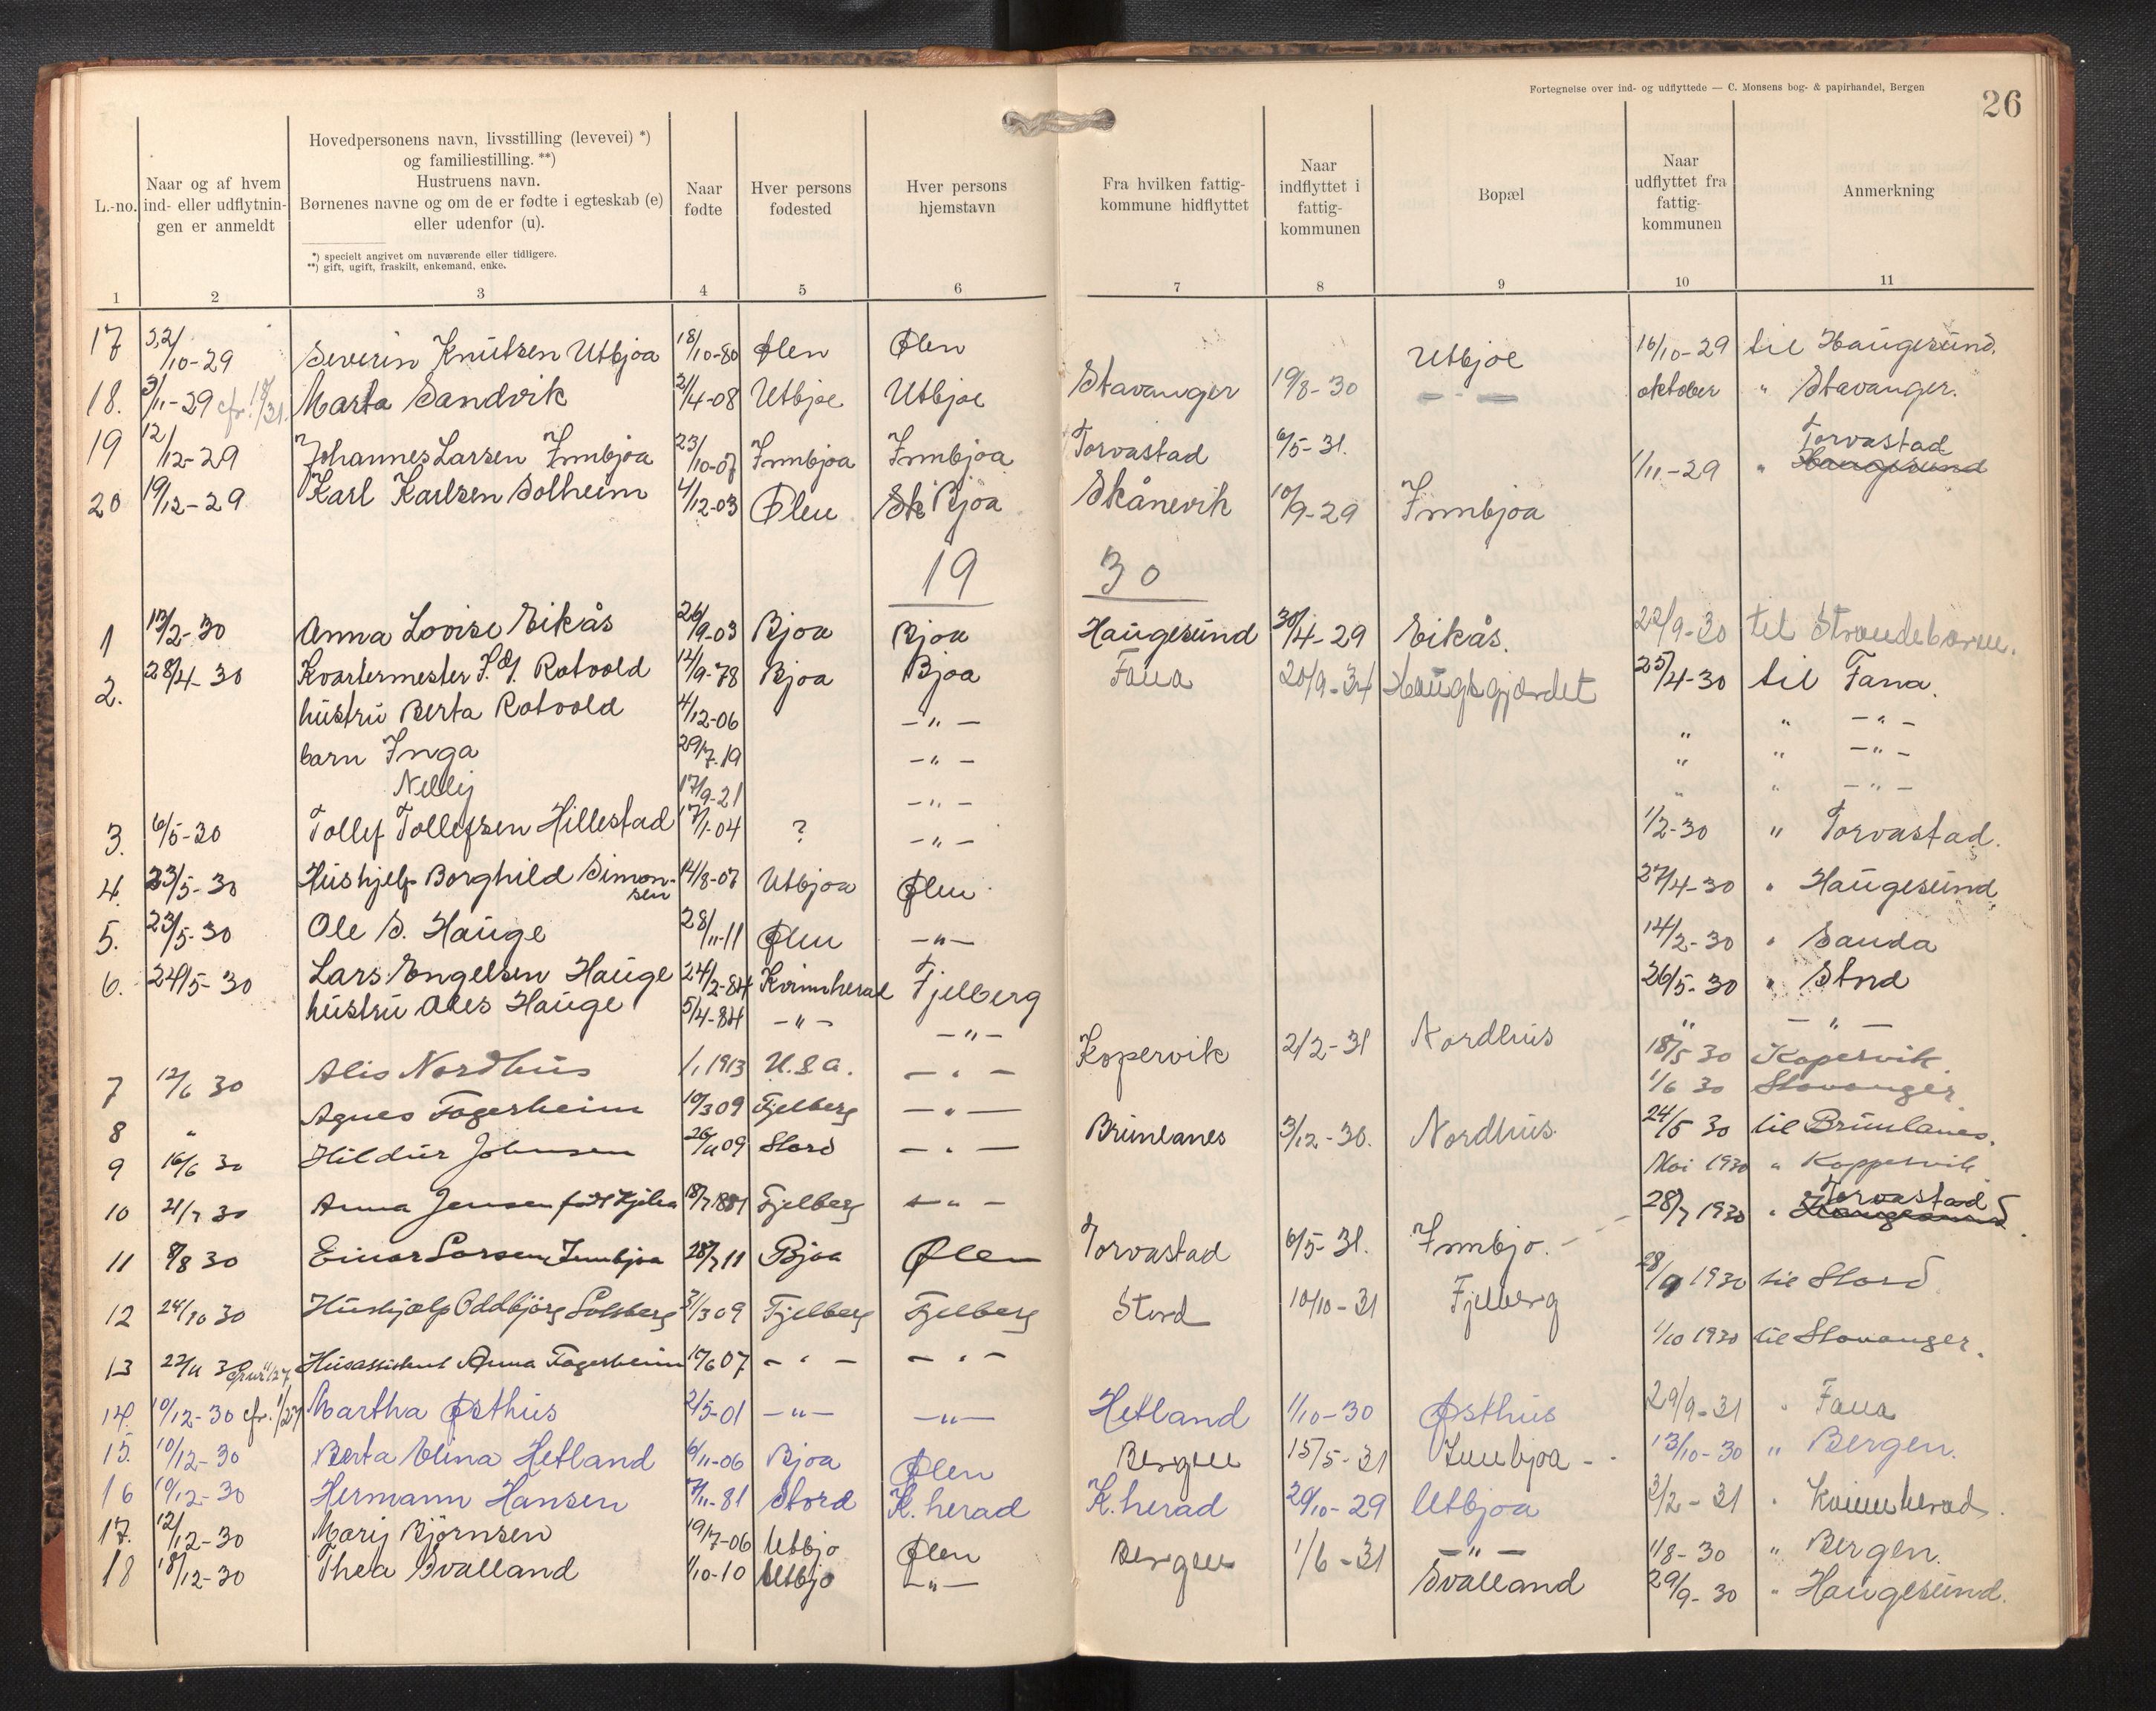 Fortegnelse over ind- og udflyttede — C. Monsens bog- & papirhandel, Bergen
26
L.-no.
Naar og af hvem ind- eller udflytnin-gen er anmeldt
Hovedpersonens navn, livsstilling (levevei) *)
og familiestilling. **)
Hustruens navn.
Børnenes navne og om de er fødte i egteskab (e)
eller udenfor (u).
*) specielt angivet om nuværende eller tidligere.
**) gift, ugift, fraskilt, enkemand, enke.
Naar fødte
Hver persons fødested
Hver persons hjemstavn
Fra hvilken fattig-kommune hidflyttet
Naar indflyttet i fattig-kommunen
Bopæl
Naar udflyttet fra fattig-kommunen
Anmerkning
1 2 3 4 5 6 7 8 9 10 11
17 /10-29 Severin Knutsen Utbjoa 18/10-80 Ølen Ølen Utbjoe 16/10-29 til Haugesund.
18. 3/11-29 cfr. Marta Sandvik 2/4-08 Utbjoe Utbjoe Stavanger 19/8-30 — " — oktober " Stavanger.
19 12/12-29 Johannes Larsen Innbjoa 23/10-07 Innbjoa Innbjoa Torvastad 6/5-31. 1/11-29 " Torvastad Haugesund
20 19/12-29 Karl Karlsen Solheim 4/12-03 Ølen Sk Bjoa Skånevik 10/9-29 Innbjoa
19 30
1 13/2-30 Anna Lovise Eikås 26/9-03 Bjoa Bjoa Haugesund 30/4-29 Eikås. 22/9-30 til Strandebarm.
2. 28/4-30 Kvartermester Rotvold 14/9-78 Bjoa Bjoa Fana 20/9-34 Haugsgjærdet 25/4-30 til Fana.
hustru Berta Rotvold 4/12-06 — " — " " — " —
barn Inga 29/7-19 — " — " " — " —
Nellij 17/9-21 — " — " " — " —
3. 6/5-30 Tollef Tollefsen Hillestad 17/1-04 ? — " — 1/2-30 " Torvastad.
4. 23/5-30 Hushjelp Borghild Simonsen 14/8-07 Utbjoa Ølen 27/4-30 " Haugesund
5. 23/5-30 Ole S. Hauge 28/11-11 Ølen — " — 14/2-30 " Sauda
6. 24/5-30 Lars Engelsen Hauge 24/2-84 Kvinnherad Fjelberg 26/5-30 " Stord
hustru Hauge 5/4-84 — " — — " — " — " —
7 12/6 30 Alis Nordhus 1/1 1913 U.S.a. — " — Kopervik 2/2-31 Nordhus 18/5 30 Kopervik.
8 " Agnes Fagerheim 10/3 09 Fjelberg — " — 1/6 30 Stavanger
9 16/6 30 Hildur Johnsen 26/11 09 Stord — " — Brunlanes 3/12-30. Nordhus 24/5 30 til Brunlanes.
10 21/7 30 Anna Jensen født 18/7 1881 Fjelberg — " — Mai 1930 " Koppervik
11 8/8 30 Einar Larsen Innbjoa 28/7 11 Bjoa Ølen Torvastad 6/5-31. Innbjo. 28/7 1930 " Torvastad Haugesund.
12 24/10 30 Hushjælp Oddbjörg Solsberg 3/3 09 Fjelberg Fjelberg Stord 10/10-31 Fjelberg 28/9 1930 til Stord
13 22/11 30 Husassistent Anna Fagerheim 17/6 07 — " — — " — 1/10 1930 til Stavanger.
14. 10/12-30 cfr. 1/27 Martha Østhus 2/5-01 — " — — " — Hetland 1/10-30 Østhus 29/9-31 " Fana
15. 10/12-30 Berta Elina Hetland 6/11-06 Bjoa Ølen Bergen 15/5-31 Innbjoa 13/10-30 " Bergen.
16 10/12-30 Hermann Hansen 7/11-81 Stord K. herad K. herad 29/10-29 Utbjoa 3/2-31 " Kvinnherad.
17. 12/12-30 Marij Björnsen 19/7-06 Utbjo Ølen Bergen 1/6-31 — " — 1/8-30 " Bergen.
18 18/12-30 Thea Svalland 1/10-10 Utbjo — " — Svalland 29/9-30 " Haugesund.